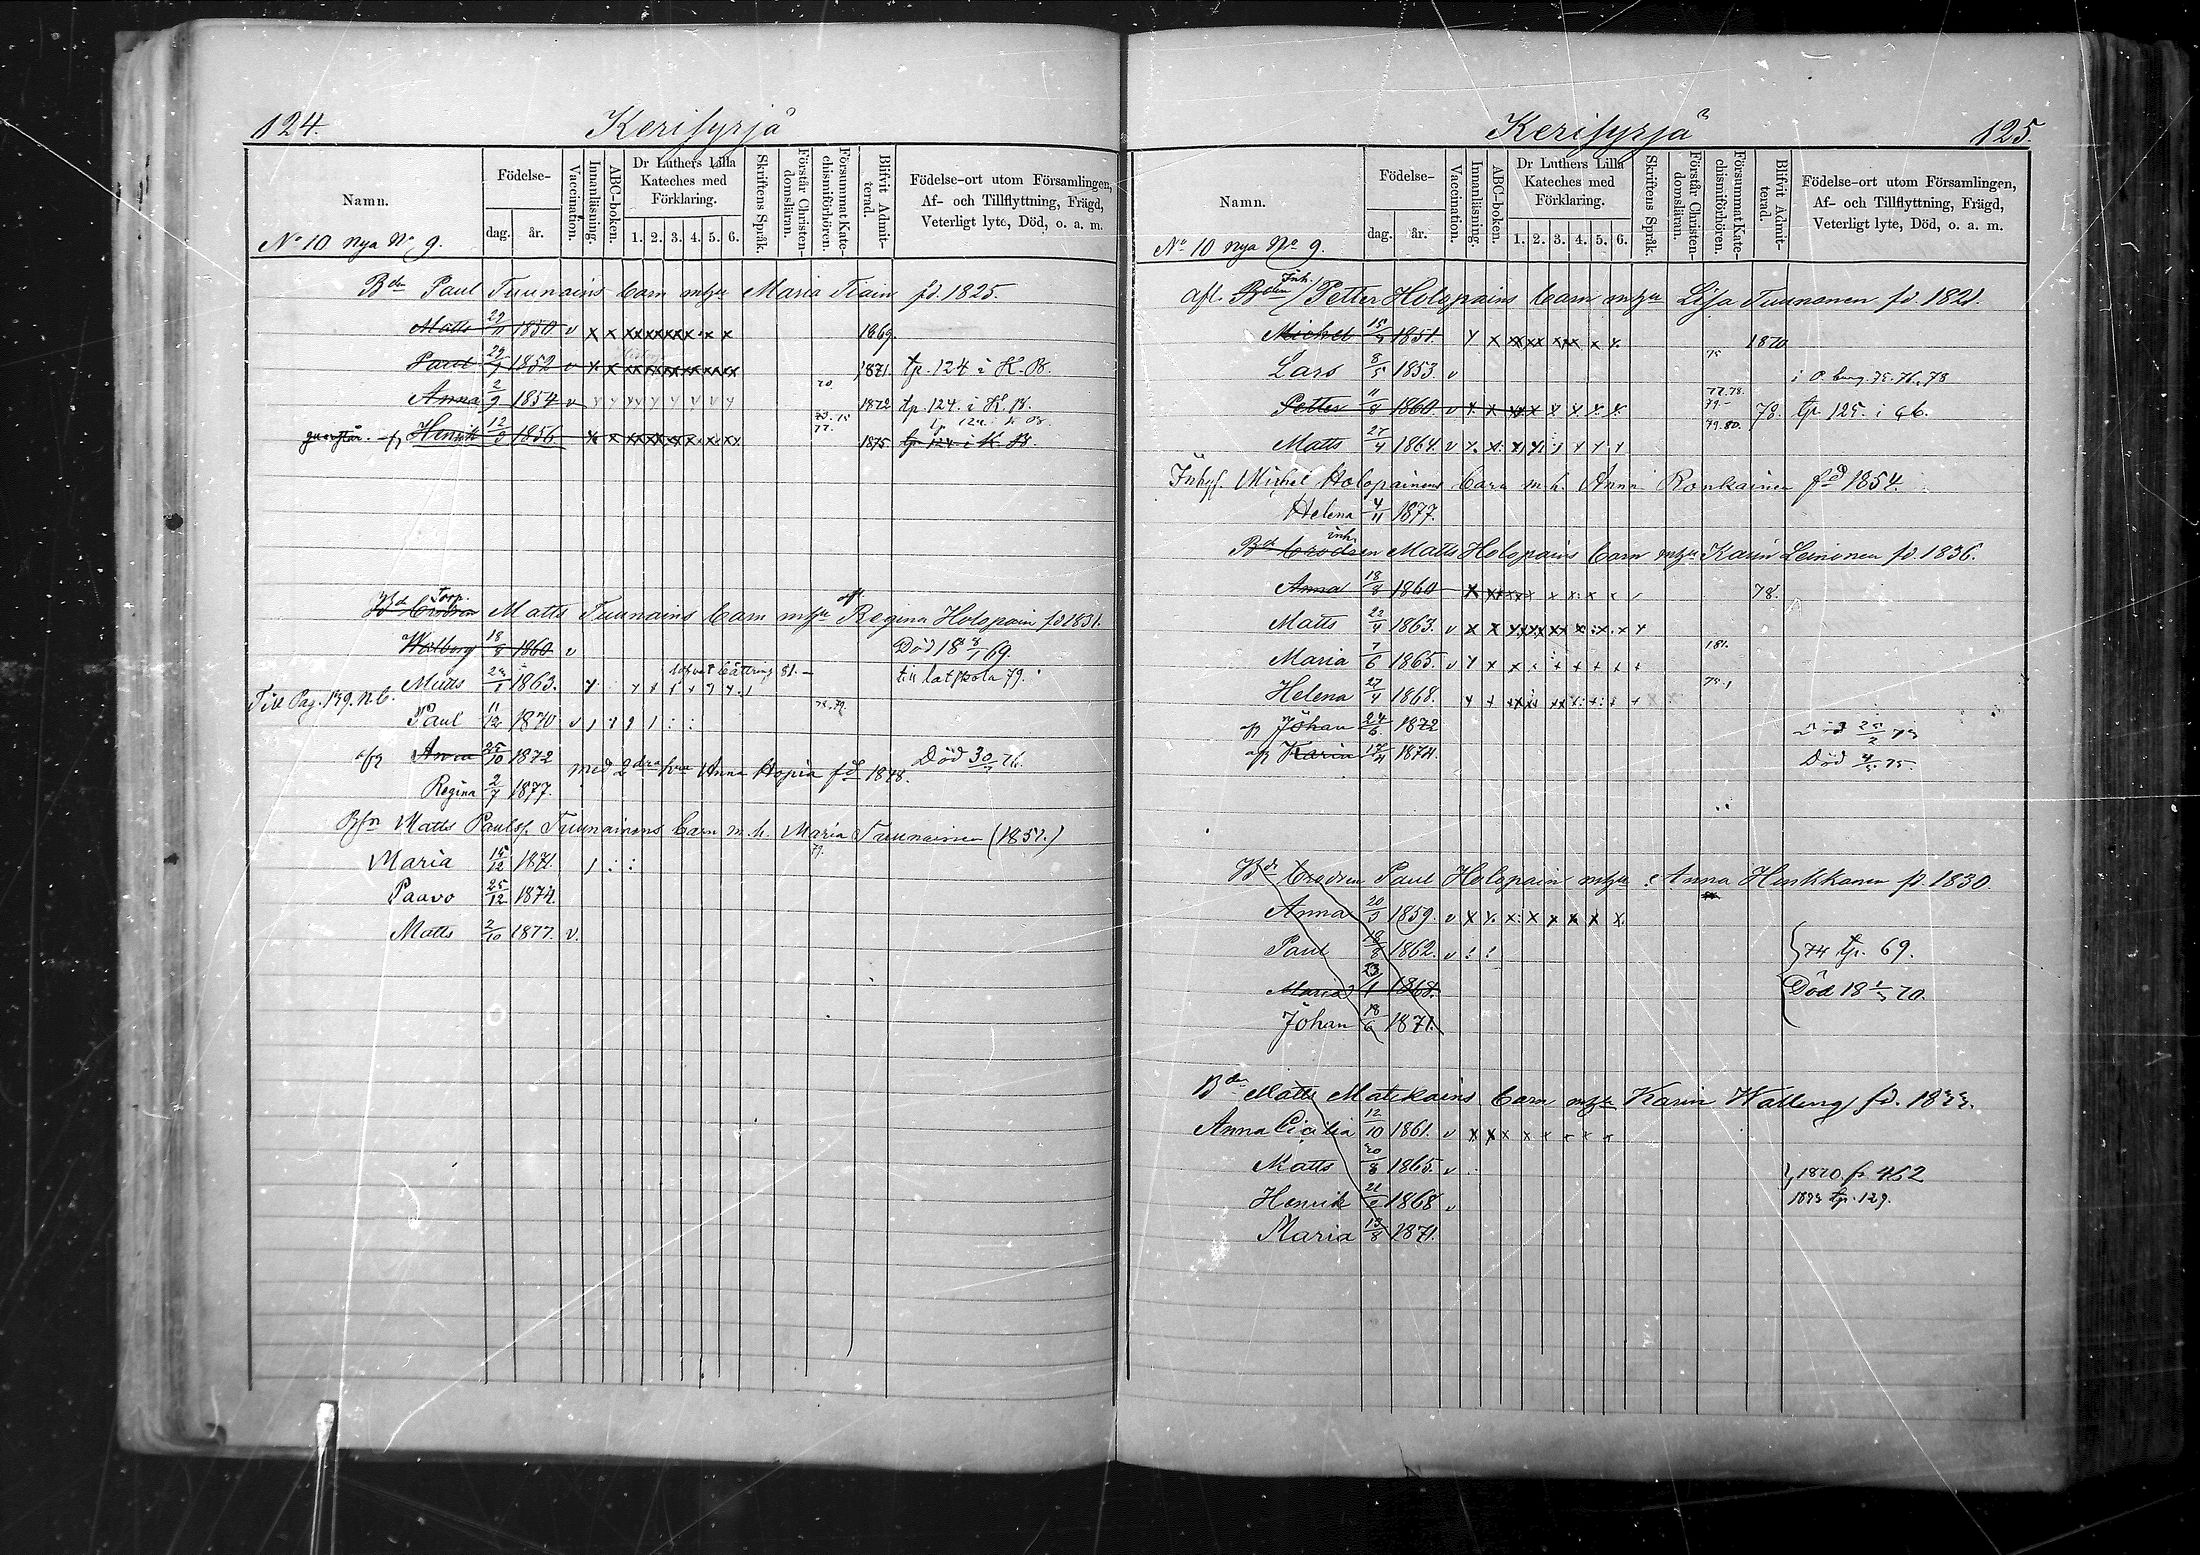 124.
Kerisyrjä
Namn.
Födelse-
dag.
år.
Vaccination.
Innanläsning.
ABC-boken.
Dr Luthers Lilla
Kateches med
Förklaring.
1. 2. 3. 4. 5. 6.
Skriftens Språk.
Förstår Christen-
domsläran.
Försummat Kate-
chismiförhören.
Blifvit Admit-
terad.
Födelse-ort utom Församlingen,
Af- och Tillflyttning, Frägd,
Veterligt lyte, Död, o. a. m.
No 10 nya No 9.
Bdn Paul Tuunains barn m hu Maria Tiain fd. 1825.
Matts 29/11 1850 v x x x x x x x x 1869.
Paul 1852 v x x x x x x x x 1871. tp. 124 i K. B.
Anna 2/9 1854 v 1872 tp. 124. i K. B.
Henrik 12/9 1856 x x x x x x x x 1875 tp 124 i K. B.
Torp.
Matts Tuunains barn m hu Regina Holopain fd 1831.
Walborg 18/8 1860 v Död 18 8/1 69
Matts 23/1 1863. till latskola 79.
Til Pag. 139. N.6.
Paul 11/12 1870 v
Anna 25/10 1872 Död 30/7 76.
med 2dra hu Anna Hopia fd 1848.
Regina 2/7 1877.
Matts Paulsp. Tuunainens barn m. h. Maria Tuunainen (1851.)
Maria 15/12 1871.
Paavo 25/12 1874
Matts 2/10 1877. v.
Kerisyrjä
125.
Namn.
Födelse-
dag.
år.
Vaccination.
Innanläsning.
ABC-boken.
Dr Luthers Lilla
Kateches med
Förklaring.
1. 2. 3. 4. 5. 6.
Skriftens Språk.
Förstår Christen-
domsläran.
Försummat Kate-
chismiförhören.
Blifvit Admit-
terad.
Födelse-ort utom Församlingen,
Af- och Tillflyttning, Frägd,
Veterligt lyte, Död, o. a. m.
No 10 nya No 9.
Inh.
afl. Bdn Petter Holopains barn m hu Lisa Tuunanen fd 1821.
Michel 15/9 1851. 1870
Lars 8/5 1853. v
Petter 11/8 1860 v x x x x x x x x 78. tp 125. i 46.
Matts 27/4 1864. v
Inhys. Michel Holopainens barn m. h. Anna Ronkainen fd 1854.
Helena 4/11 1877.
inh.
Bd brodren Matts Holopains barn m hu Karin Leinonen fd. 1836.
Anna 18/8 1860 78.
Matts 22/4 1863. v
Maria 7/6 1865. v
Helena 27/4 1868.
Johan 24/6 1872
Karin 1874. Död 4/5 75.
Bds brodren Paul Holopain m hu Anna Heikkanen fd. 1830.
Anna 20/9 1859. v x x x x x x x x
Paul 18/8 1862. v
74 tp. 69.
Maria 23/1 1868. Död 18 70.
Johan 18/6 1871.
Bdn Matts Matikains barn m hu Karin Walberg fd. 1833.
Anna Cicilia 12/10 1861. v x x x x x x x x
Matts 20/8 1865. v
1870 fr 462
Henrik 21/2 1868 v
1873 tp. 129.
Maria 13/8 1871.